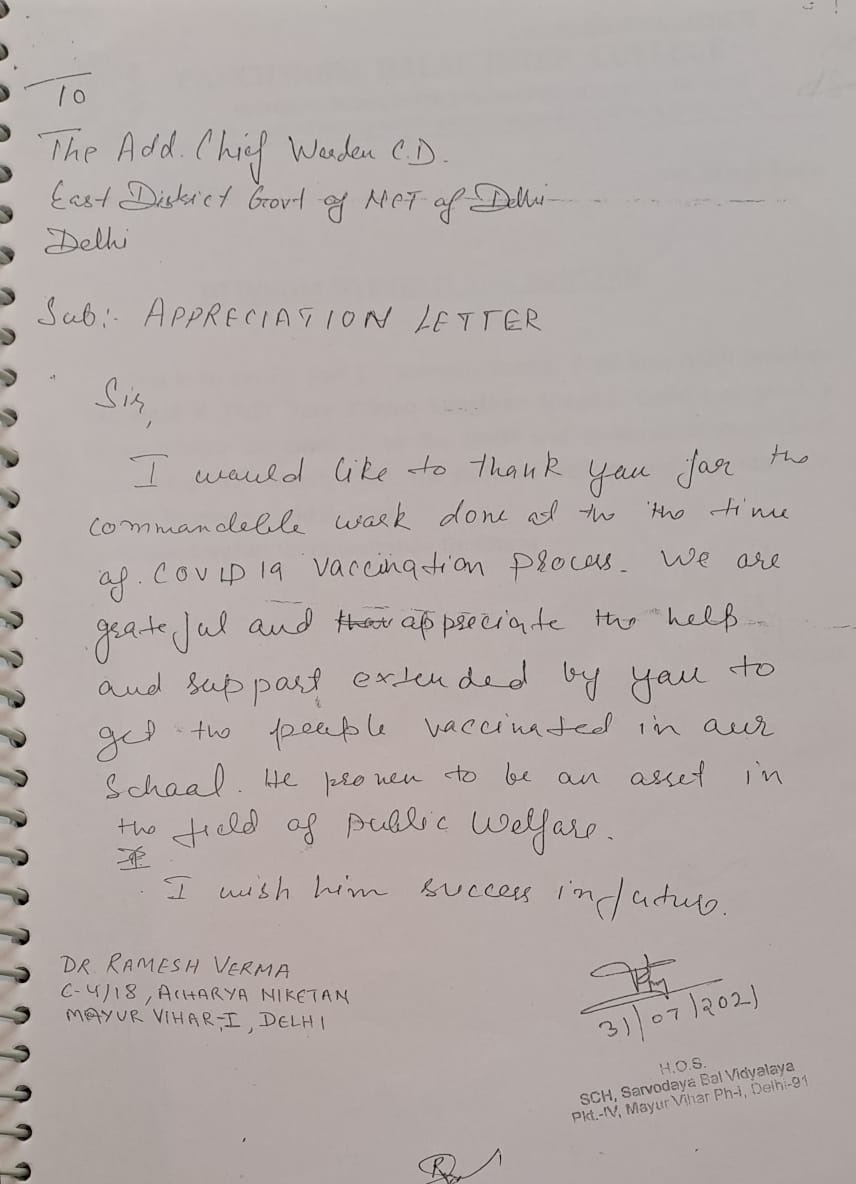 To
The Add. Chief Warden C.D.
East District Govt of NCT of Delhi
Delhi
Sub:- APPRECIATION LETTER
Sir,
I would like to thank you for the
commandeble work done at the the time
of. COVID 19 vaccination process. We are
grateful and appreciate the help
and support extended by you to
get the people vaccinated in our
School. He proven to be an asset in
the field of public welfare.
I wish him success in future.
DR. RAMESH VERMA
C-4/18, ACHARYA NIKETAN
MAYUR VIHAR-I, DELHI
31/07/2021
H.O.S.
SCH, Sarvodaya Bal Vidyalaya
Pkt.-IV, Mayur Vihar Ph-I, Delhi-91